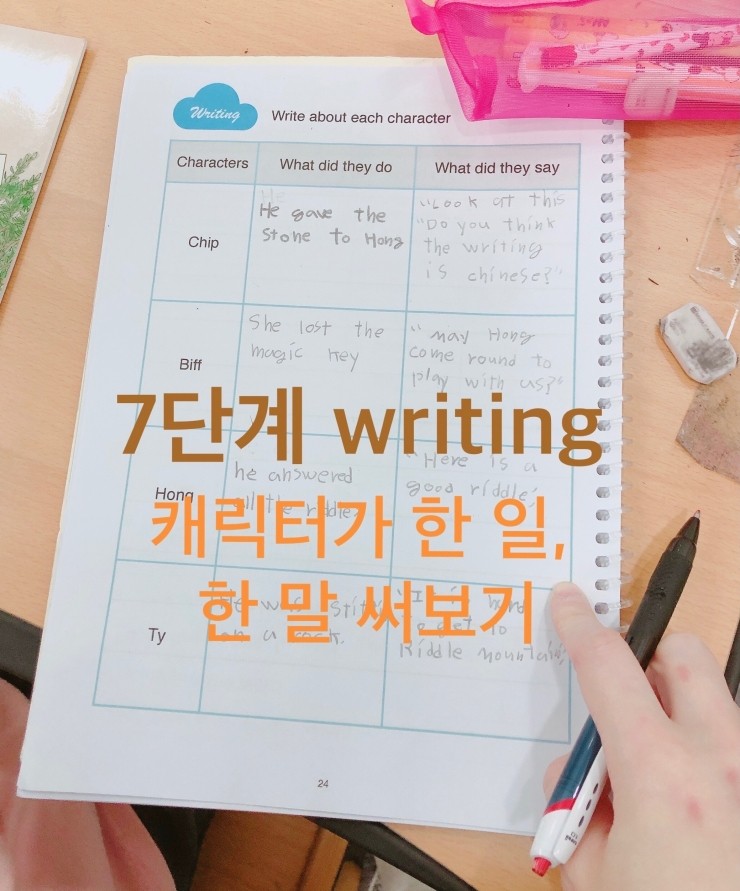 Writing
Write about each character
Characters
What did they do
What did they say
Chip
He
He gave the
Stone to Hong
"Look at this
"Do you think
the writing
is chinese?"
Biff
She lost the
magic key
"may Hong
come round to
play with us?"
7단계 writing
Hong
he answered
all the riddle
"Here is a
good riddle"
캐릭터가 한 일,
한 말 써보기
Ty
on a rock.
hard
to get to
Riddle mountain"
24